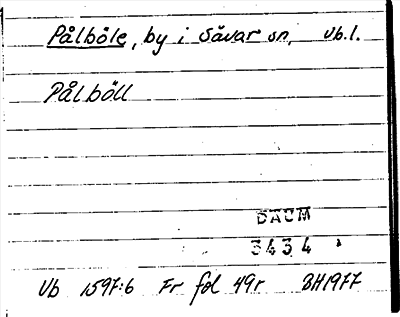 Pålböle, by i Sävar sn, Vb.l.
Pålböll
DACM
3434
Vb 1597:6 Fr fol 49r BH1977